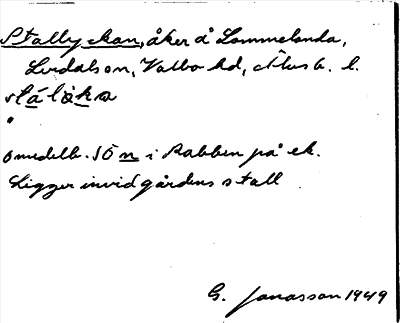 Stallyckan, åker å Lommelanda,
Lerdals sn, Valbo hd, Älvsb. l.
stálỳka
omedelb. SÖ n i Rabben på ek.
Ligger invid gårdens stall
G. Jonasson 1949